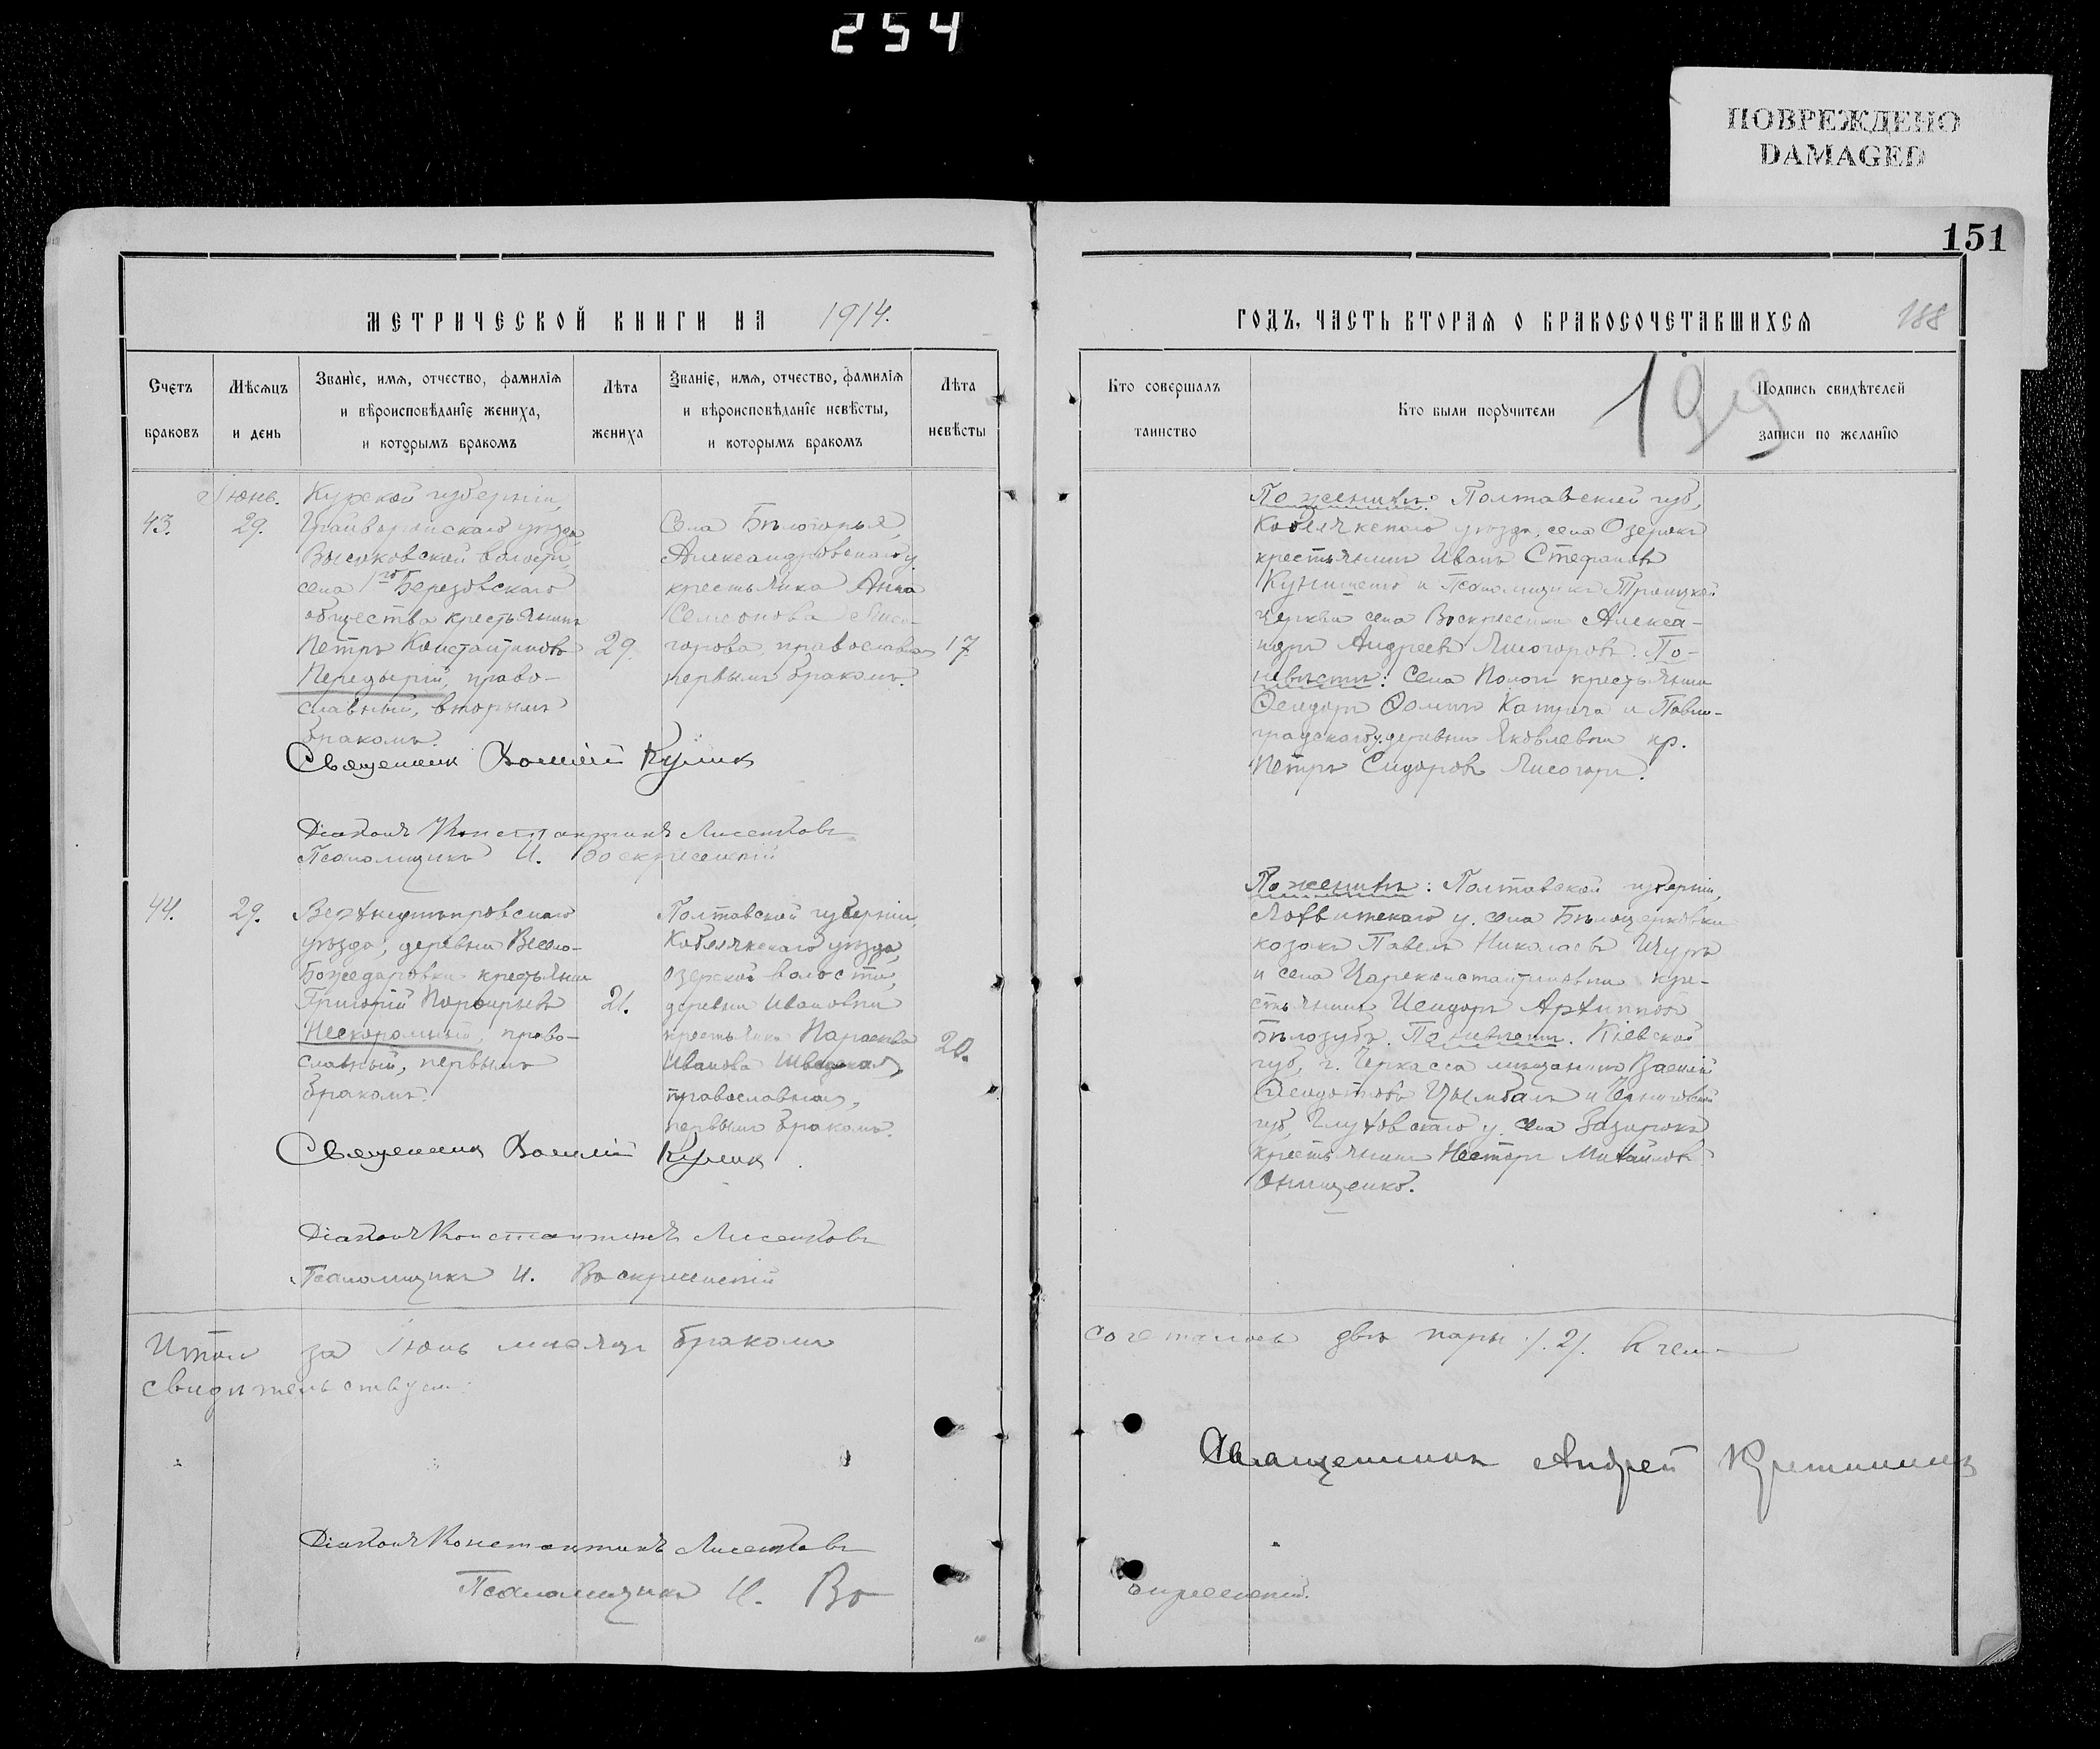 254
ПОВРЕЖДЕНО
DAMAGED
151
МЕТРИЧЕСКОЙ КНИГИ НА 1914.
Счетъ браковъ
Мѣсяцъ и день
Званіе, имя, отчество, фамилія и вѣроисповѣданіе жениха, и которымъ бракомъ
Лѣта жениха
Званіе, имя, отчество, фамилія и вѣроисповѣданіе невѣсты, и которымъ бракомъ
Лѣта невѣсты
Іюнь.
43.
29.
Курской губерніи,
Грайворонскаго уѣзда
Высоковской волости,
села 1го Березовскаго
общества крестьянинъ
Петръ Константиновъ
Передерій, право-
славный, вторымъ
бракомъ.
29.
Села Бѣлогорья,
Александровскаго у.
крестьянка Анна
Семенова Лисо-
горова, православная
первымъ бракомъ.
17
Священникъ Василій Куликъ
Діаконъ Константинъ Лисенковъ
Псаломщикъ И. Воскресенскій
44.
29.
Верхнеднѣпровскаго
уѣзда, деревни Весело-
Божедаровки крестьянинъ
Григорій Порфирьевъ
Нескоромный, право-
славный, первымъ
бракомъ.
21.
Полтавской губерніи,
Кобелякскаго уѣзда,
Озерской волости,
деревни Ивановки
крестьянка Параскева
Иванова
православная,
первымъ бракомъ.
20.
Священникъ Василій Куликъ
Діаконъ Константинъ Лисенковъ
Псаломщикъ И. Воскресенскій
Итого за Іюнь мѣсяцъ бракомъ
свидѣтельствуемъ:
Діаконъ Константинъ Лисенковъ
Псаломщикъ И. Во
ГОДЪ, ЧАСТЬ ВТОРАЯ О БРАКОСОЧЕТАВШИХСЯ 188
Кто совершалъ таинство
Кто были поручители
199
Подпись свидѣтелей записи по желанію
По женихѣ: Полтавской губ,
Кобелякскаго уѣзда, села Озерокъ
крестьянинъ Иванъ Стефановъ
и Псаломщикъ Троицкой
церкви села Воскресенки Алекса-
ндръ Андреевъ Лисогоровъ. По-
невѣстѣ: Села Пологи крестьянинъ
Ѳеодоръ Ѳоминъ и Павло-
градскаго у. деревни Яковлевки кр.
Петръ Сидоровъ Лисогоръ.
По женихѣ: Полтавской губерніи,
Лохвицкаго у. села Бѣлоцерковки
козакъ Павелъ Николаевъ Щуръ
и села Цареконстантиновки кре-
стьянинъ Исидоръ Архиповъ
Бѣлозубъ. По невѣстѣ. Кіевской
губ, г. Черкасса мѣщанинъ Василій
Ѳеодотовъ Цымбалъ и Черниговской
губ, Глуховскаго у. села Зазирокъ
крестьянинъ Несторъ Михайловъ
Онищенко.
сочеталось двѣ пары /.2/. въ чемъ
Священникъ Андрей
скресенскій.